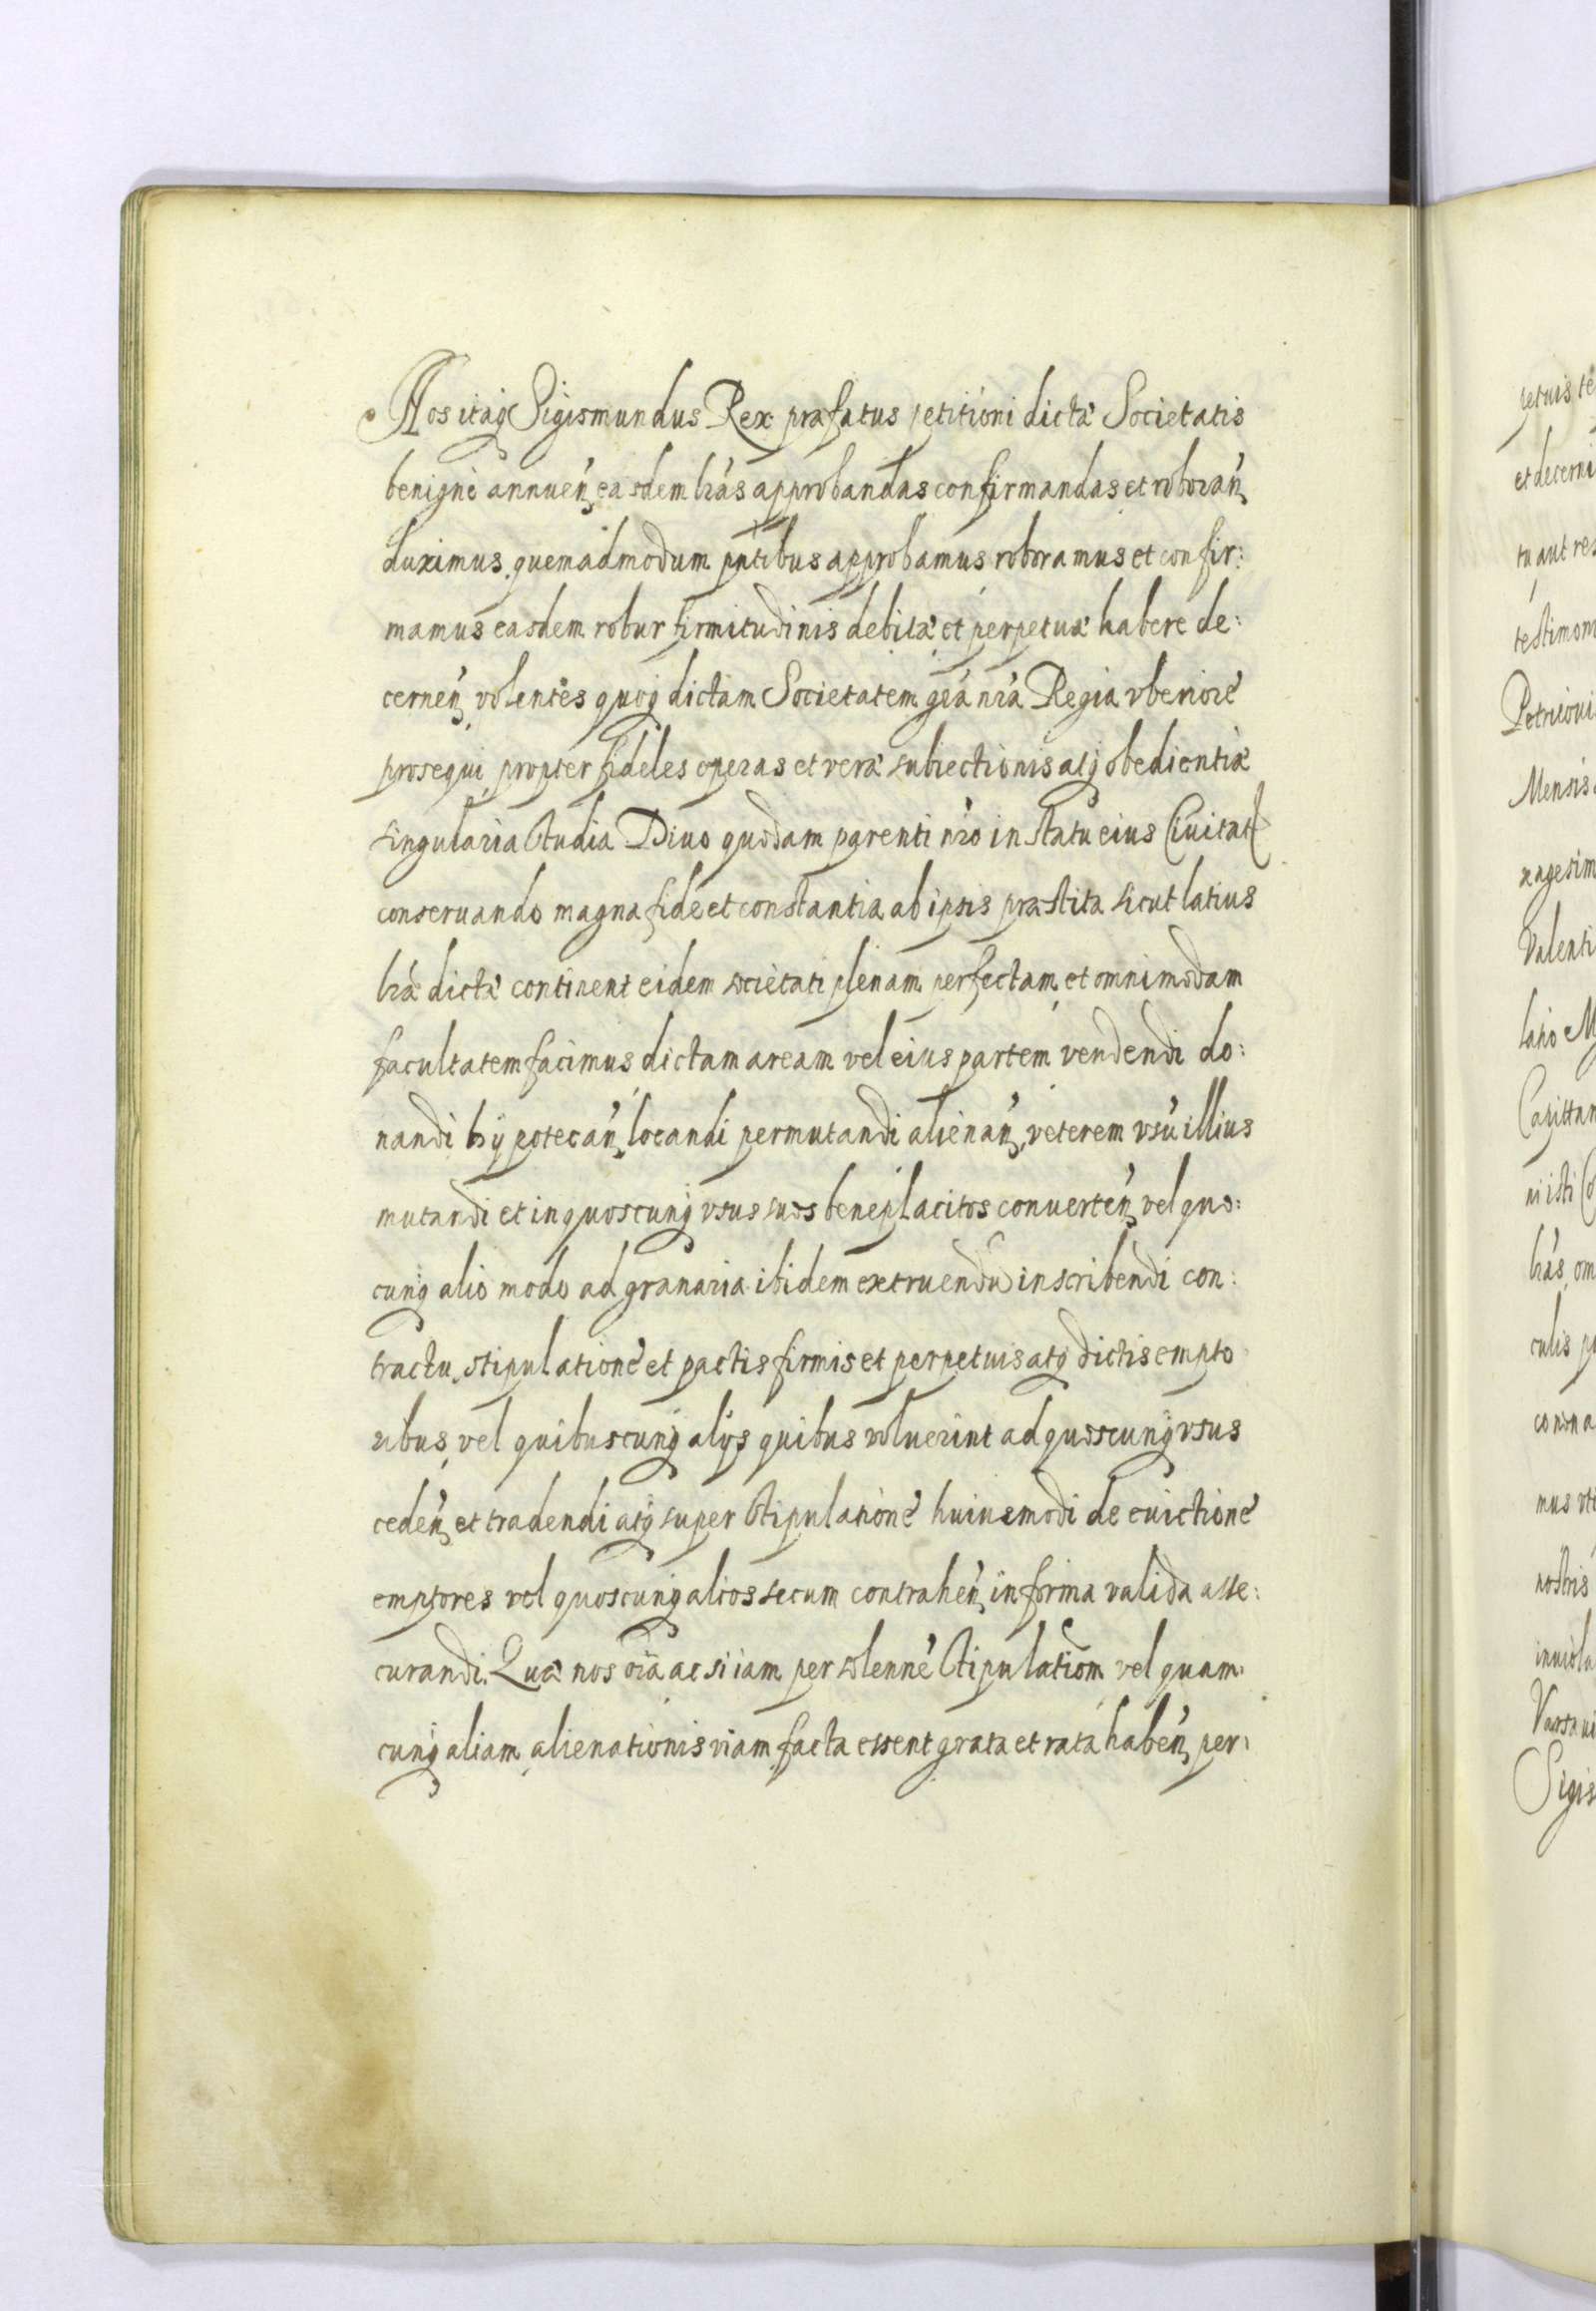 Nos itaq Sigismundus Rex præfatus petitioni dictæ Societatis
benigne annuen̄ easdem lr̄as approbandas confirmandas et roboran̄
duximus quemadmodum pn̄tibus approbamus roboramus et confir:
mamus easdem robur firmitudinis debitæ et perpetuæ habere de:
cernen̄ volentes quoq dictam Societatem gr̄a nr̄a Regia vberiore
prosequi propter fideles operas et veræ subiectionis atq obedientiæ
singularia studia Diuo quodam parenti nr̄o in statu eius Ciuitat
conseruando magna fide et constantia ab ipsis præstita sicut latius
lr̄æ dictæ continent eidem societati plenam perfectam et omnimodam
facultatem facimus dictam aream vel eius partem vendendi do:
nandi hÿpotecan̄ locandi permutandi alienan̄ veterem vsū illius
mutandi et in quoscunq vsus suos beneplacitos conuerten̄ vel quo:
cunq alio modo ad granaria ibidem extruendū inscribendi con:
tractu stipulatione et pactis firmis et perpetuis atq dictis empto
ribus vel quibuscunq alÿs quibus voluerint ad quoscunq vsus
ceden̄ et tradendi atq super stipulatione huiusmodi de euictione
emptores vel quoscunq alios secum contrahen̄ in forma valida asse:
curandi. Quæ nos oīa ac si iam per solenne stipulatiom vel quam
cunq aliam alienationis viam facta essent grata et rata haben̄ per:
petuis
et decerni
tu aut res
testimoni
Petricoui
Mensis
xagesim
Valenti
latio M
Capittan
lr̄as om
culis
mus vti
nostris
inuiola
Varsaui
Sigis